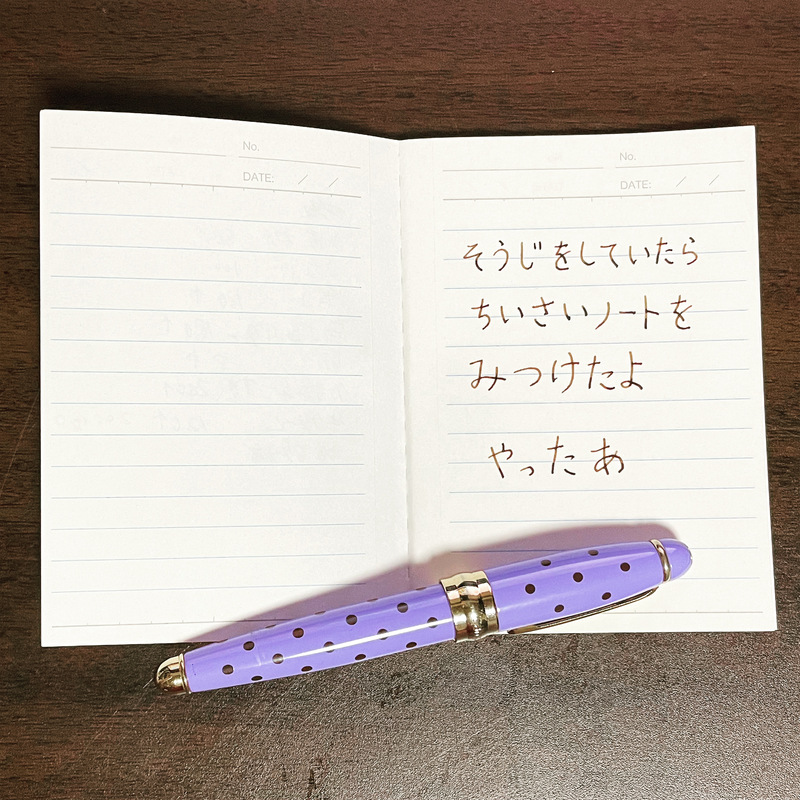 No.
DATE: / /
No.
DATE: / /
そうじをしていたら
ちいさいノートを
みつけたよ
やったあ